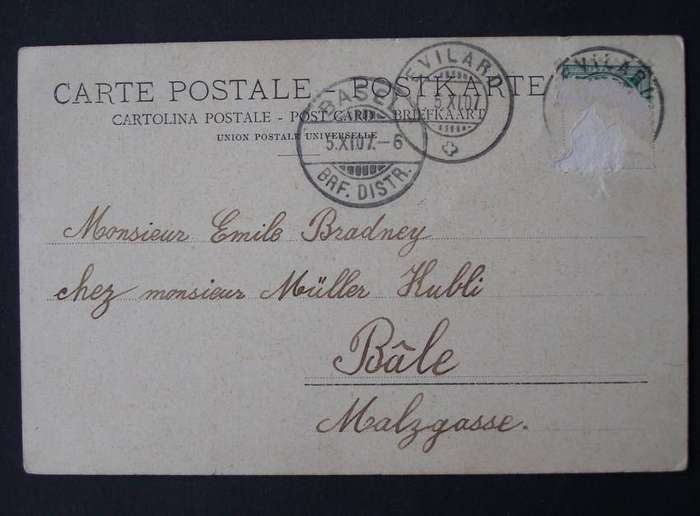 CARTE POSTALE – POSTKARTE
CARTOLINA POSTALE - POST CARD - BRIEFKAART
UNION POSTALE UNIVERSELLE
BASEL
5.XI.07.–6
BRF. DISTR.
EVILARD
5.XI.07
EVILARD
Monsieur Emile Bradney
chez monsieur Müller Kubli
Bâle
Malzgasse.